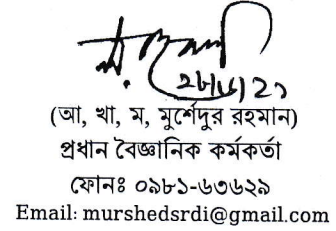 ২৮/৬/২১
(আ, খা, ম, মুর্শেদুর রহমান)
প্রধান বৈজ্ঞানিক কর্মকর্তা
ফোনঃ ০৯৮১-৬৩৬২৯
Email: murshedsrdi@gmail.com